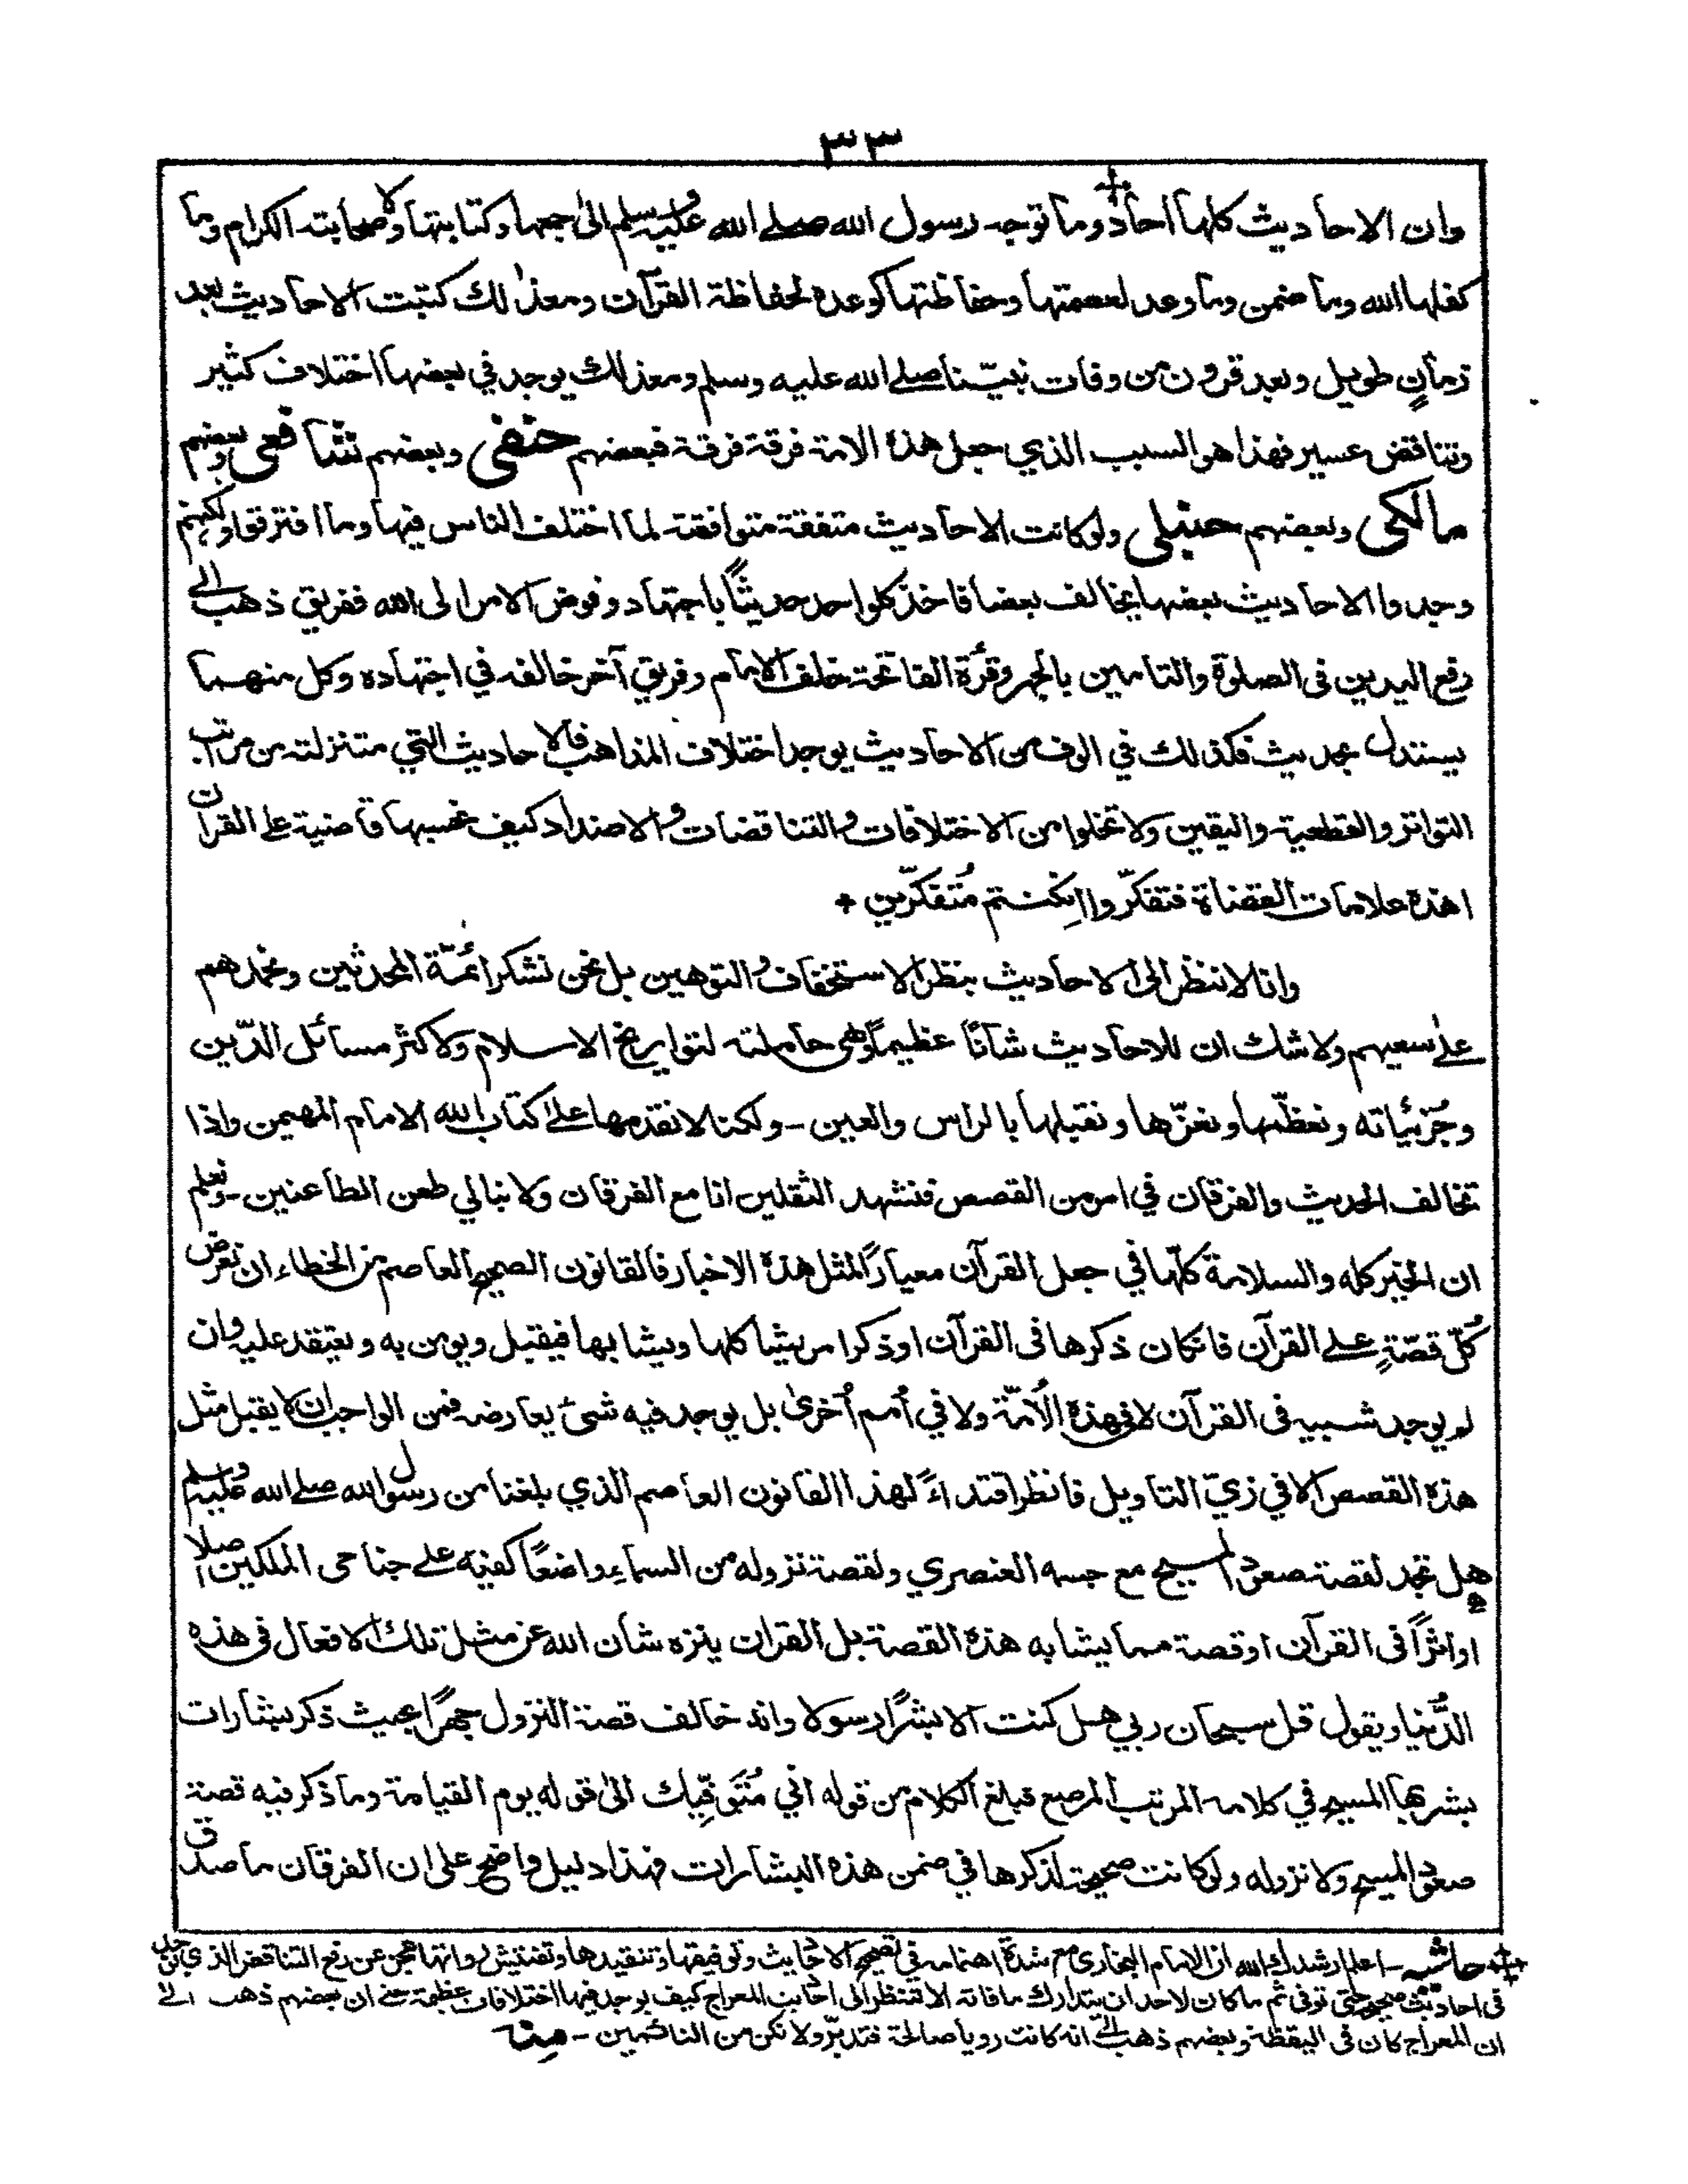 ٣٣
وان الاحاديث كلها آحاد وما توجه رسول الله صلے الله عليه وسلم الىٰ جمعها وكتابتها ولا صحابته الكرام وما
كفلها الله وما ضمن وما وعد لعصمتها وحفاظتها كوعده لحفاظة القرآن ومعذٰلك كتبت الاحاديث بعد
زمانٍ طويل وبعد قرون من وفات نبيّنا صلے الله عليه وسلم ومعذلك يوجد في بعضها اختلاف كثير
وتناقض عسير فهذا هو السبب الذي جعل هذه الامة فرقة فرقة فبعضهم حنفى وبعضهم شافعى وبعضهم
مالكى وبعضهم حنبلى ولو كانت الاحاديث متفقة متوافقة لما اختلف الناس فيها وما افترقوا ولكنهم
وجدوا الاحاديث بعضها يخالف بعضا فاخذ كلواحد حديثًا باجتهاد وفوض الامر الى الله ففريق ذهب الےٰ
رفع اليدين فى الصلوة والتامين بالجهر وقرٔة الفاتحة خلف الامام وفريق آخر خالفه في اجتهاده وكل منهما
يستدل بحديث فكذلك في الوف من الاحاديث يوجد اختلاف المذاهب فالاحاديث التي متنزلة من مراتب
التواتر والقطعية واليقين ولا تخلوا من الاختلافات والتناقضات والاضداد كيف نحسبها قاضية علے القرآن
اهذه علامات القضاة فتفكّروا ان كنتم مُتفكّرين +
وانا لا ننظر الى الاحاديث بنظر الاستخفاف والتوهين بل نحن نشكر ائمّة المحدثين ونحمدهم
علےٰ سعيهم ولا شك ان للاحاديث شانًا عظيمًا وهى حاملة لتواريخ الاسلام ولاكثر مسائل الدّين
وجُزئياته ونعظّمها ونعزّها ونقبلها بالراس والعين ـ ولكنا لا نقدمها علےٰ كتاب الله الامام المهيمن واذا
تخالف الحديث والفرقان في امر من القصص فنشهد الثقلين انا مع الفرقان ولا نبالي طعن الطاعنين ـ ونعلم
ان الخير كله والسلامة كلّها في جعل القرآن معيارًا لمثل هذه الاخبار فالقانون الصحيح العاصم من الخطاء ان نعرض
كُلّ قصّةٍ علے القرآن فان كان ذكرها فى القرآن او ذكر امر يشاكلها ويشابهها فيقبل ويومن به ويعتقد عليه وان
لم يوجد شبيه فى القرآن لا فى هذه الاُمّة ولا في اُمم اُخرىٰ بل يوجد فيه شئ يعارضه فمن الواجب ان لا يقبل مثل
هذه القصص الا في زيّ التاويل فانظر اقتداءً لهذا القانون العاصم الذي بلغنا من رسول الله صلے الله عليه وسلم
هل تجد لقصة صعود المسيح مع جسمه العنصري ولقصة نزوله من السماء واضعًا كفيه علے جناحى الملكين اصلا
او اثرًا فى القرآن او قصة مما يشابه هذه القصة بل القران ينزه شان الله عن مثل تلك الافعال فى هذه
الدُّنيا ويقول قل سبحان ربي هل كنت الا بشرًا رسولا وانه خالف قصة النزول جهرًا بحيث ذكر بشارات
بشر بها المسيح في كلامه المرتب المرصع فبلغ الكلام من قوله اني مُتَوَفِّيك الىٰ قوله يوم القيامة وما ذكر فيه قصة
صعود المسيح ولا نزوله ولو كانت صحيحة لذكرها في ضمن هذه البشارات فهذا دليل واضح على ان الفرقان ما صدق
حاشيه ـ اعلم ارشدك الله ان الامام البخارى مع شدة اهتمامه فى تصحيح الاحاديث وتوفيقها وتنقيدها وتفتيش رواتها عجز عن رفع التناقض الذي يوجد
فى احاديث صحيحه حتى توفى ثم ما كان لاحد ان يتدارك ما فاته الا تنظر الى احاديث المعراج كيف يوجد فيها اختلافات عظيمة حتى ان بعضهم ذهب الےٰ
ان المعراج كان فى اليقظة وبعضهم ذهب الےٰ انه كانت رويا صالحة فتدبّر ولا تكن من النائمين ـ منه